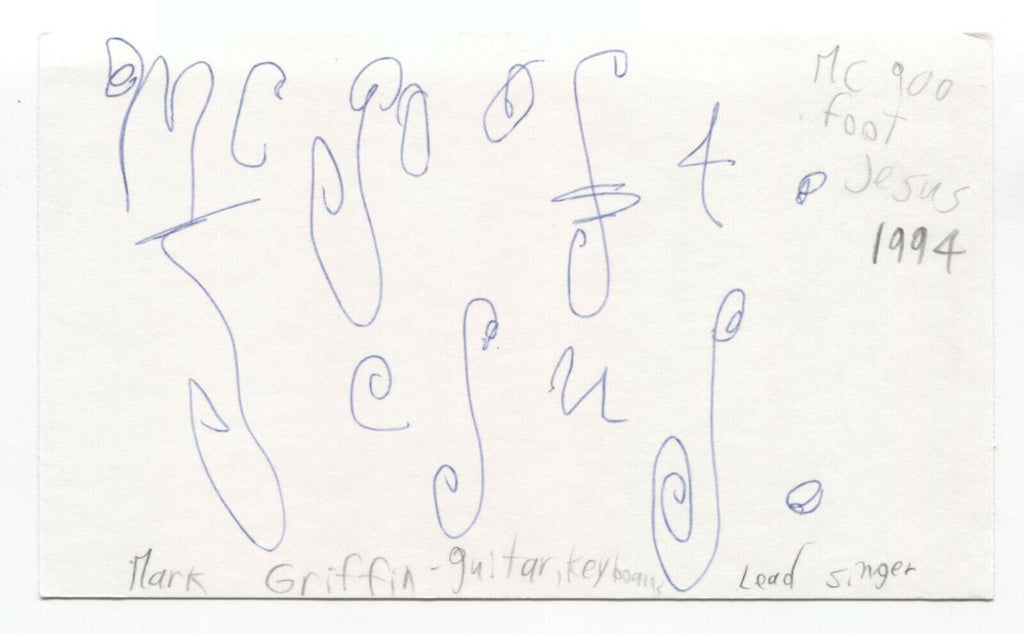 MC 900 ft.
Jesus.
MC 900
foot
Jesus
1994
Mark Griffin - guitar, keyboards Lead singer